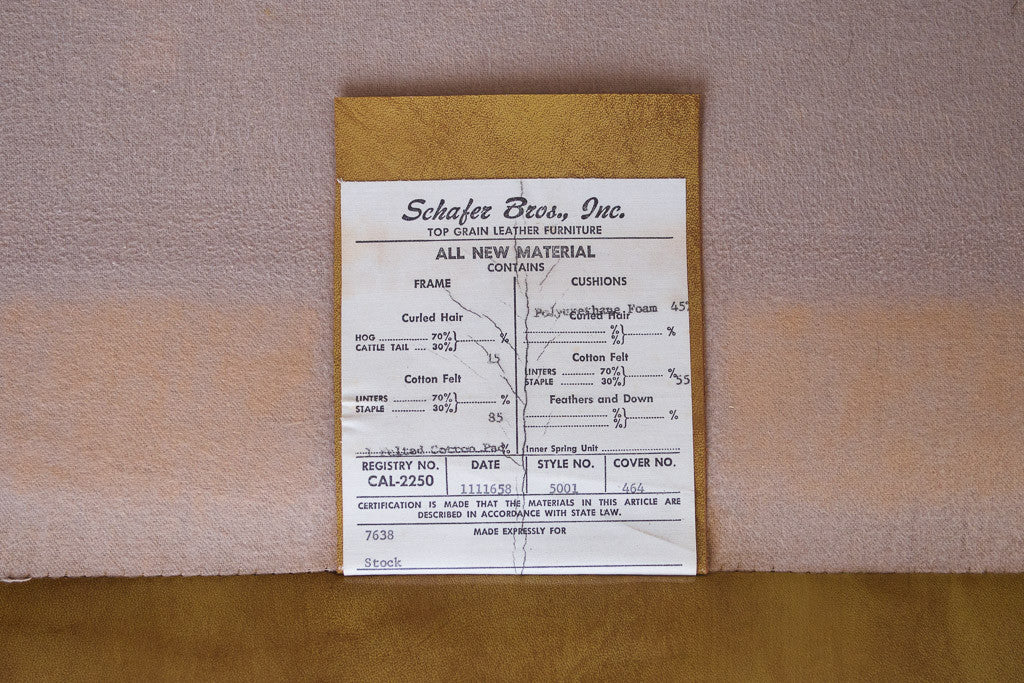 Schafer Bros., Inc.
TOP GRAIN LEATHER FURNITURE
ALL NEW MATERIAL
CONTAINS
FRAME
Curled Hair
HOG 70% %
CATTLE TAIL 30%
15
Cotton Felt
LINTERS 70% %
STAPLE 30%
85
1 Felted Cotton Pad %
CUSHIONS
Polyurethane Foam 45%
Curled Hair
% %
%
Cotton Felt
LINTERS 70% %
STAPLE 30% 55
Feathers and Down
% %
%
Inner Spring Unit
REGISTRY NO. DATE STYLE NO. COVER NO.
CAL-2250 1111658 5001 464
CERTIFICATION IS MADE THAT THE MATERIALS IN THIS ARTICLE ARE
DESCRIBED IN ACCORDANCE WITH STATE LAW.
7638 MADE EXPRESSLY FOR
Stock